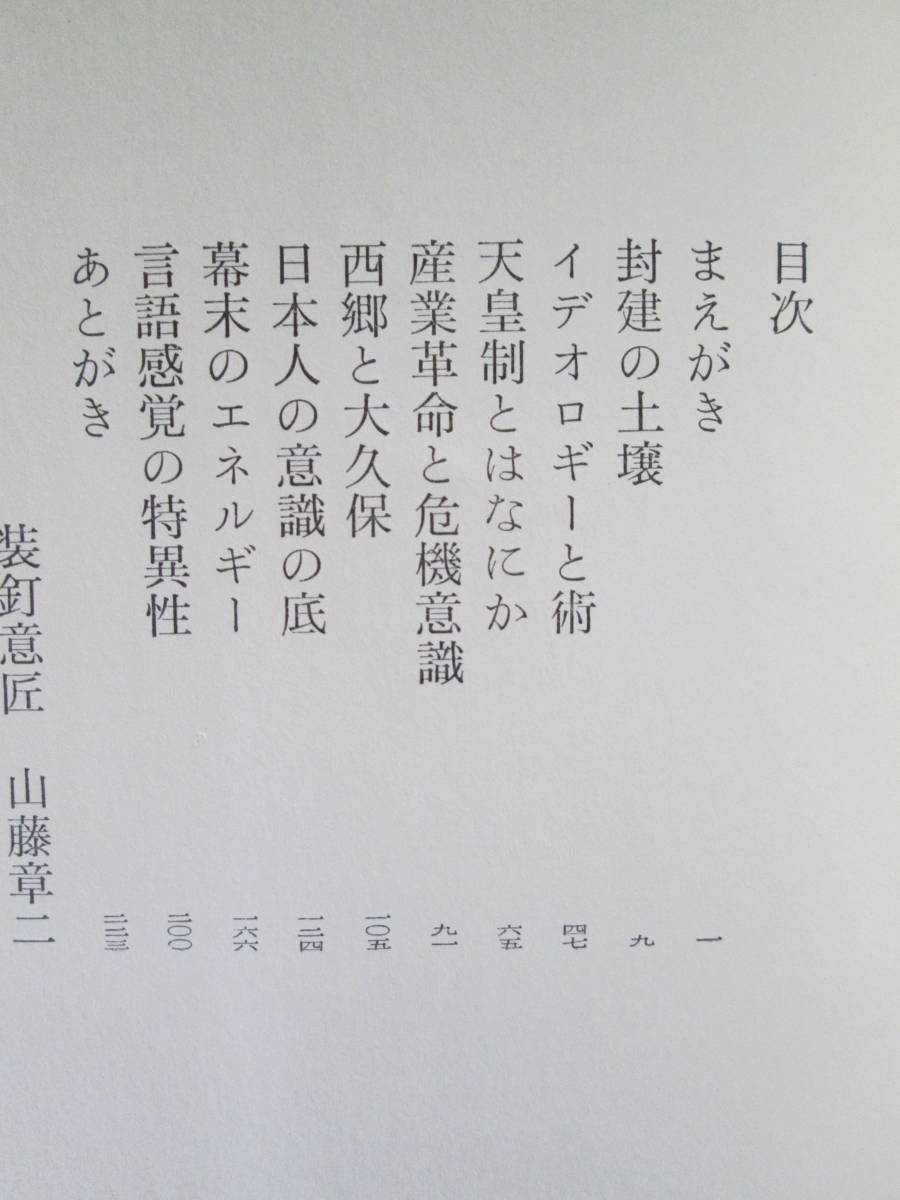 目次
まえがき 一
封建の土壌 九
イデオロギーと術 四七
天皇制とはなにか 六五
産業革命と危機意識 九一
西郷と大久保 一〇五
日本人の意識の底 一二四
幕末のエネルギー 一六六
言語感覚の特異性 二〇〇
あとがき 二二三
装釘意匠 山藤章二